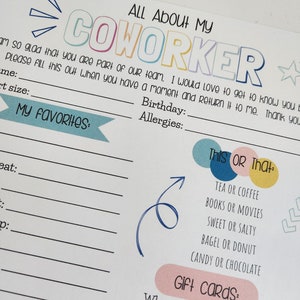 All About My
COWORKER
am so glad that you are part of our team. I would love to get to know you
Please fill this out when you have a moment and return it to me. Thank you
Name:
Birthday:
rt size:
Allergies:
My Favorites:
This or That:
TEA OR COFFEE
BOOKS OR MOVIES
SWEET OR SALTY
BAGEL OR DONUT
CANDY OR CHOCOLATE
Gift Cards: